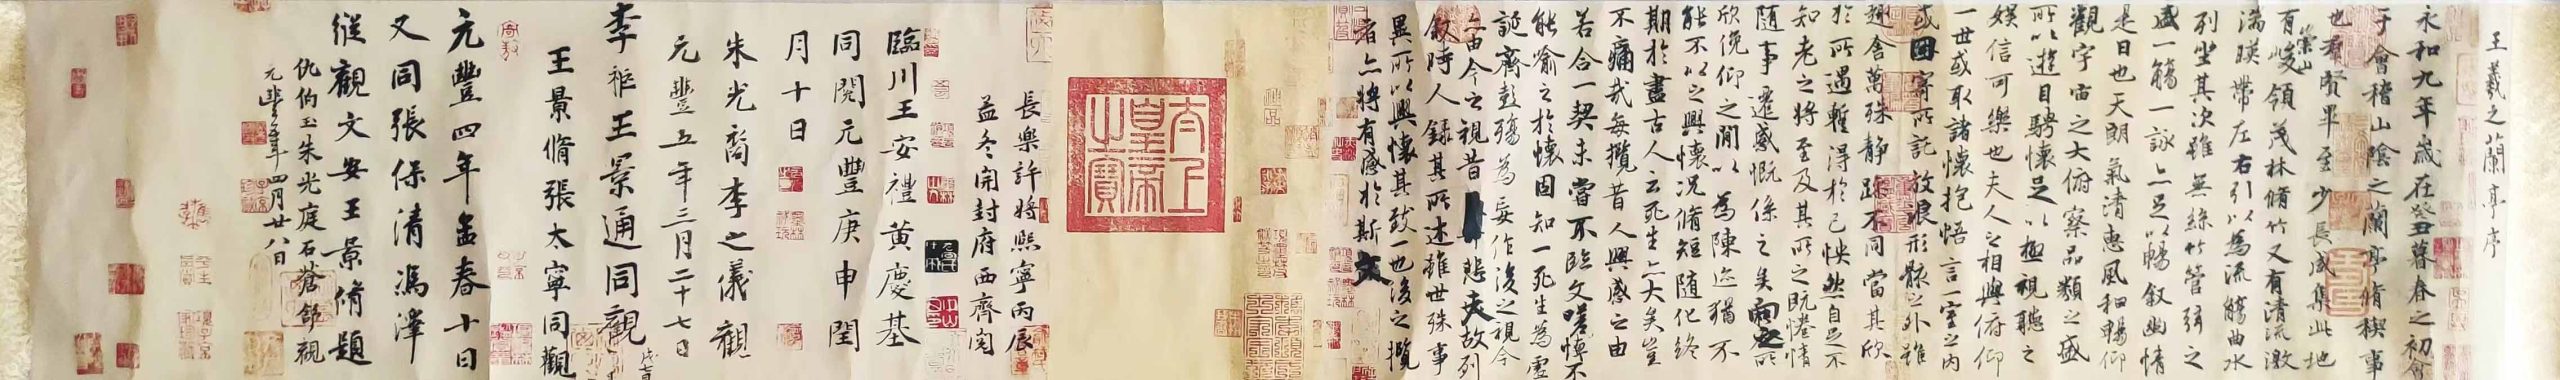 王羲之蘭亭序
永和九年歲在癸丑暮春之初會
于會稽山陰之蘭亭脩稧事
也羣賢畢至少長咸集此地
有崇山峻領茂林脩竹又有清流激
湍暎帶左右引以為流觴曲水
列坐其次雖無絲竹管弦之
盛一觴一詠亦足以暢敘幽情
是日也天朗氣清惠風和暢仰
觀宇宙之大俯察品類之盛
所以遊目騁懷足以極視聽之
娛信可樂也夫人之相與俯仰
一世或取諸懷抱悟言一室之內
或因寄所託放浪形骸之外雖
趣舍萬殊靜躁不同當其欣
於所遇蹔得於己怏然自足不
知老之將至及其所之既惓情
隨事遷感慨係之矣向之所
欣俛仰之閒以為陳迹猶不
能不以之興懷況脩短隨化終
期於盡古人云死生亦大矣豈
不痛哉每攬昔人興感之由
若合一契未嘗不臨文嗟悼不
能喻之於懷固知一死生為虛
誕齊彭殤為妄作後之視今
亦由今之視昔悲夫故列
敘時人錄其所述雖世殊事
異所以興懷其致一也後之攬
者亦將有感於斯文
太上皇帝之寶
長樂許將熙寧丙辰
益冬開封府西齊閱
臨川王安禮黃慶基
同閱元豐庚申閏
月十日
朱光裔李之儀觀
元豐五年三月二十七日
李秬王景通同觀
王景脩張太寧同觀
元豐四年孟春十日
又同張保清馮澤
縱觀文安王景脩題
仇伯玉朱光庭石蒼舒觀
元豐年四月廿八日